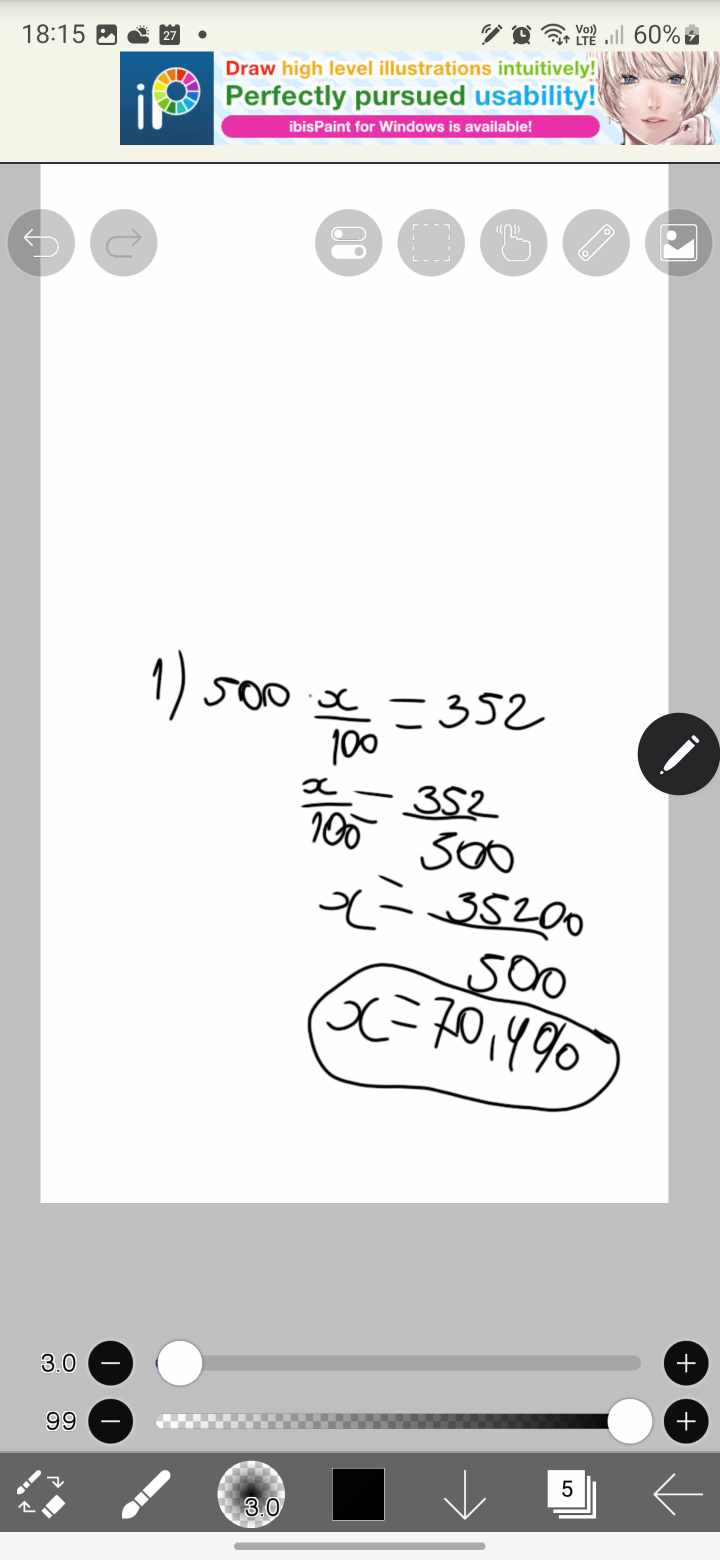 18:15 27 Vo)) LTE 60%
Draw high level illustrations intuitively!
iP Perfectly pursued usability!
ibisPaint for Windows is available!
1) 500 · x/100 = 352
x/100 = 352/500
x = 35200/500
x = 70,4%
3.0
99
3.0
5